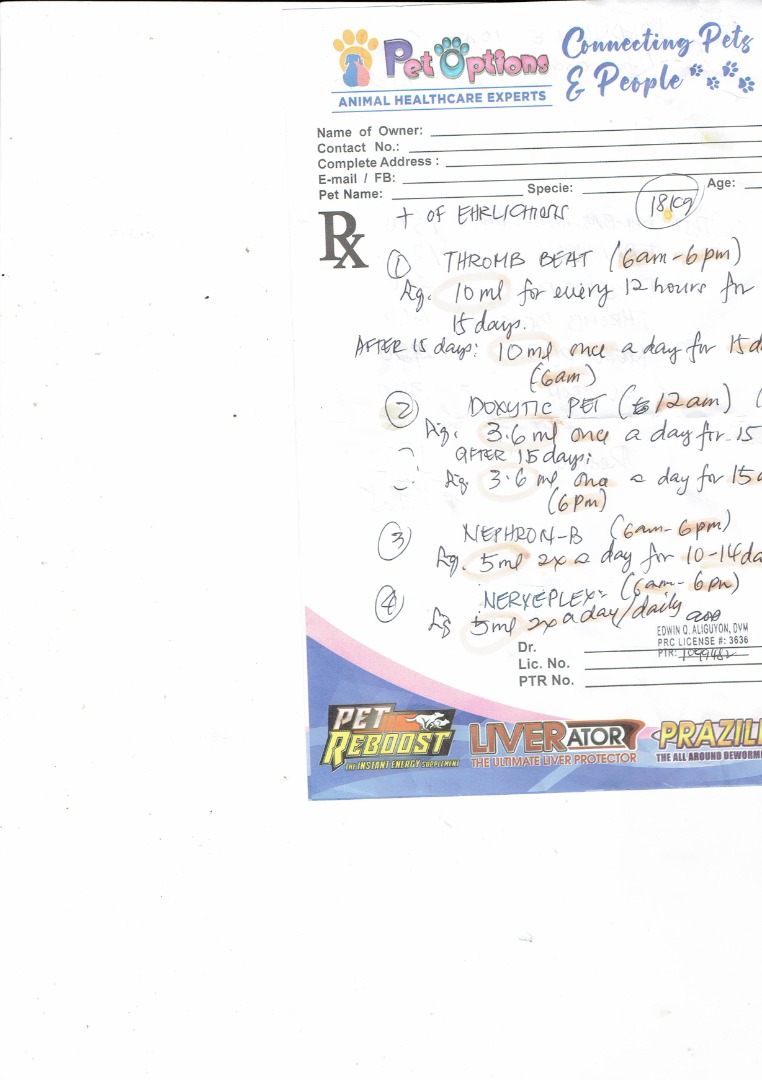 Pet Options
ANIMAL HEALTHCARE EXPERTS
Connecting Pets
& People
Name of Owner:
Contact No.:
Complete Address :
E-mail / FB:
Pet Name: Specie: Age:
Rx + OF EHRLICHIOSIS 18kg
1 THROMB BEAT (6am-6pm)
Sig. 10 ml for every 12 hours for
15 days.
AFTER 15 days: 10 ml once a day for 15 d
(6am)
2 DOXYTIC PET ( 12 am) (
Sig. 3.6 ml once a day for 15
AFTER 15 days:
Sig. 3.6 ml once a day for 15
(6pm)
3 NEPHRON-B (6am-6pm)
Sig. 5ml 2x a day for 10-14 da
4 NERVEPLEX (6am-6pm)
Sig 5ml 2x a day/daily
EDWIN Q. ALIGUYON, DVM
PRC LICENSE #: 3636
PTR:
Dr.
Lic. No.
PTR No.
PET REBOOST
THE INSTANT ENERGY SUPPLEMENT
LIVERATOR
THE ULTIMATE LIVER PROTECTOR
PRAZIL
THE ALL AROUND DEWORM